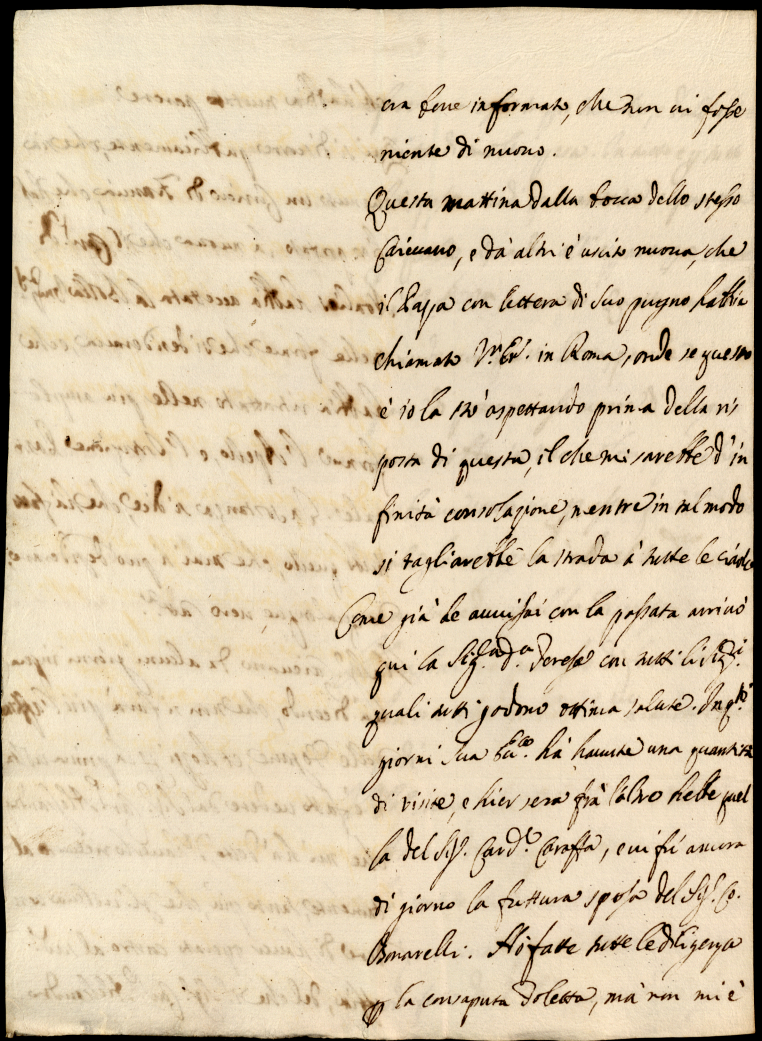 era bene informato, che non vi fosse
niente di nuovo.
Questa mattina dalla bocca dello stesso
e dà altri è uscito nuova, che
il Papa con lettera di suo pugno habbia
chiamato V. Em. in Roma, onde se questo
è io la stò aspettando prima della ris
posta di questa, il che mi sarebbe d'in
finità consolazione, mentre in tal modo
si tagliarebbe la strada à tutte le
Come già le avvisai con la passata arrivò
qui la Sig.ra d.a Teresa con tutti li Sig.ri
quali tutti godono ottima salute. In q.ti
giorni Sua Ecc.a hà havute una quantità
di visite, e hier sera frà l'altro hebbe quel
la del Sig. Card.le Caraffa, e vi fú ancora
di giorno la futtura sposa del Sig. Co.
Bonarelli. Hò fatte tutte le diligenza
p la consaputa doletta, mà non mi è